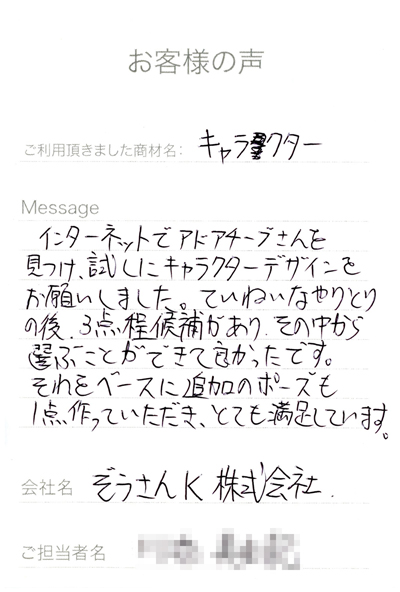 お客様の声
ご利用頂きました商材名： キャラクター
Message
インターネットでアドアチーブさんを
見つけ、試しにキャラクターデザインを
お願いしました。ていねいなやりとり
の後、3点程候補があり、その中から
選ぶことができて良かったです。
それをベースに追加のポーズも
1点作っていただき、とても満足しています。
会社名 ぞうさんK 株式会社.
ご担当者名